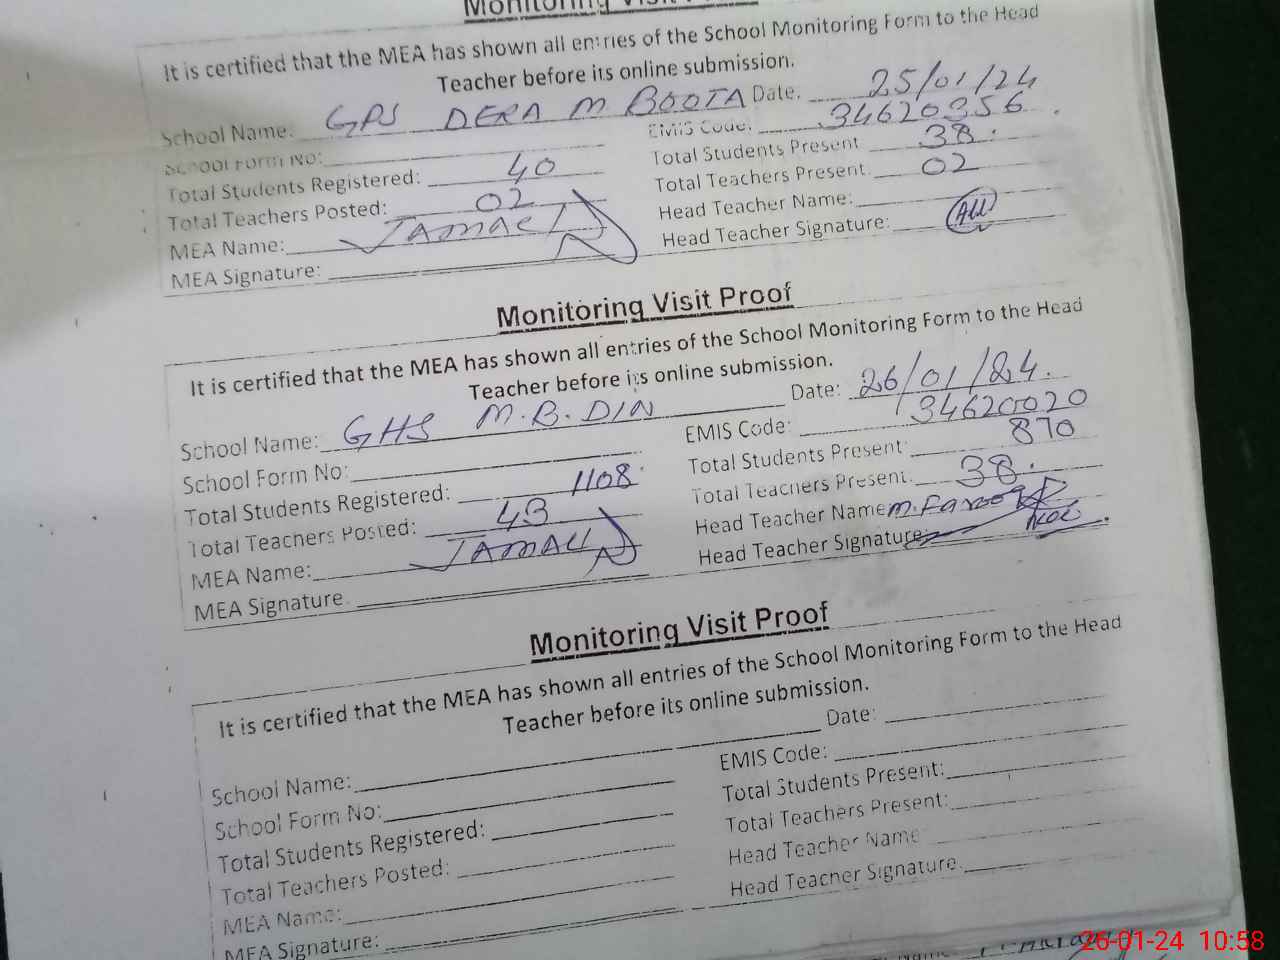 Monitoring Visit
It is certified that the MEA has shown all entries of the School Monitoring Form to the Head
Teacher before its online submission.
School Name: GPS DERA M BOOTA Date: 25/01/24
School Form No: EMIS Code: 34620356
Total Students Registered: 40 Total Students Present 38.
Total Teachers Posted: 02 Total Teachers Present: 02
MEA Name: JAMAL Head Teacher Name:
MEA Signature: Head Teacher Signature:
Monitoring Visit Proof
It is certified that the MEA has shown all entries of the School Monitoring Form to the Head
Teacher before its online submission.
School Name: GHS M.B.DIN Date: 26/01/24.
School Form No: EMIS Code: 34620020
Total Students Registered: 1108 Total Students Present: 870
Total Teachers Posted: 43 Total Teachers Present: 38.
MEA Name: JAMAL Head Teacher Name M. Farooq
MEA Signature. Head Teacher Signature:
Monitoring Visit Proof
It is certified that the MEA has shown all entries of the School Monitoring Form to the Head
Teacher before its online submission.
School Name: Date:
School Form No: EMIS Code:
Total Students Registered: Total Students Present:
Total Teachers Posted: Total Teachers Present:
MEA Name: Head Teacher Name
MEA Signature: Head Teacher Signature.
26-01-24 10:58